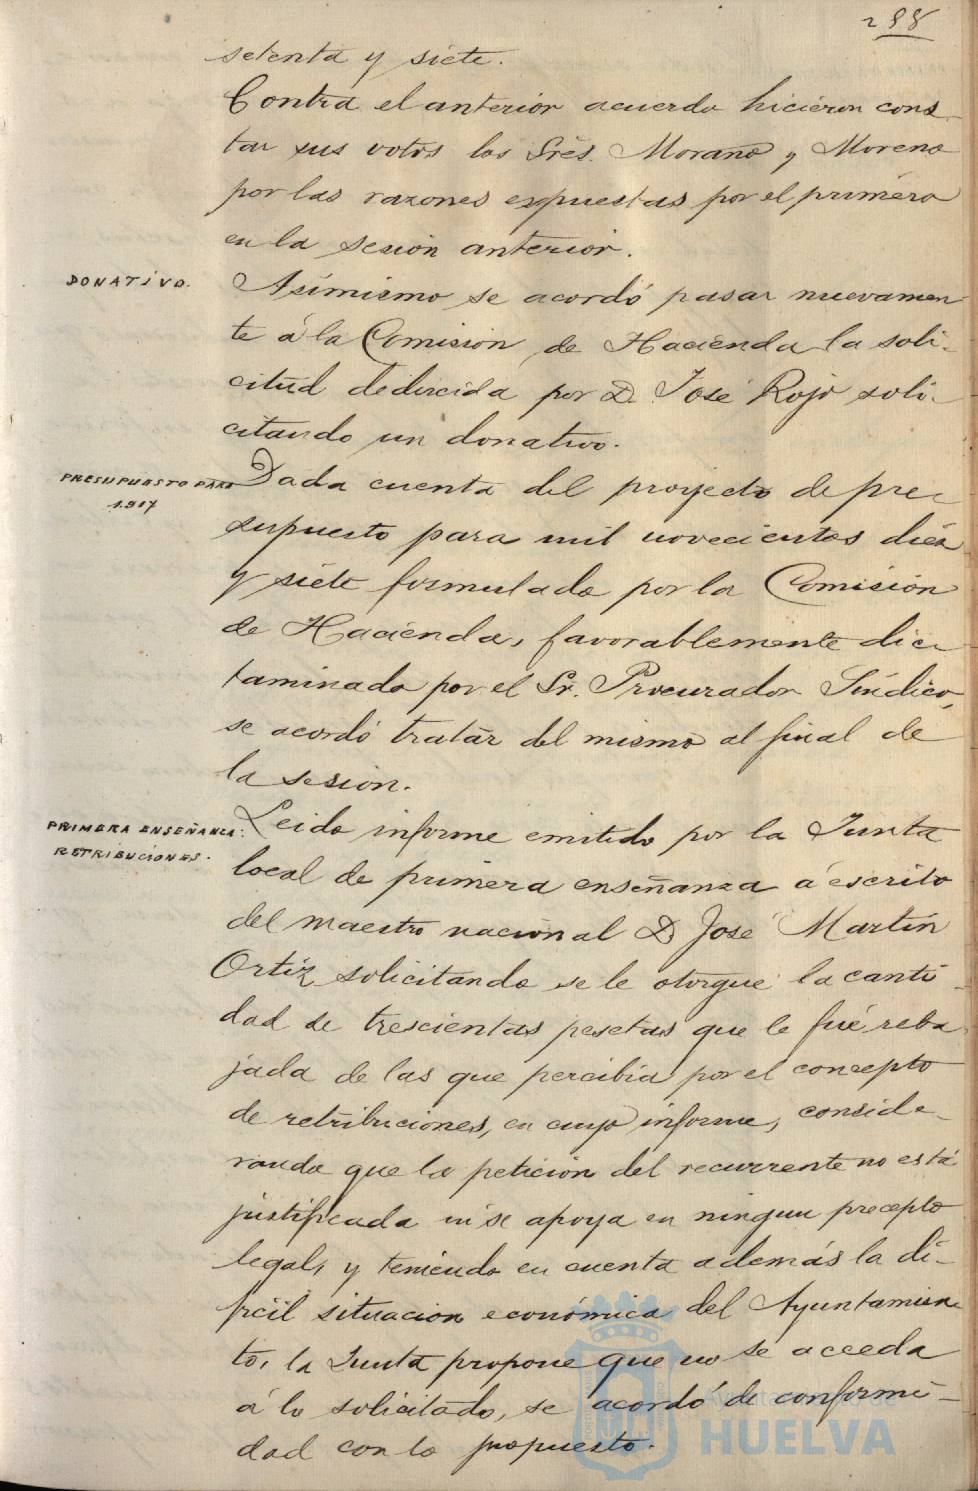 288
setenta y siete.
Contra el anterior acuerdo hicieron cons-
tar sus votos los Sres. Morano y Moreno
por las razones expuestas por el primero
en la sesión anterior.
DONATIVO.
Asimismo se acordó pasar nuevamen-
te á la Comisión de Hacienda la soli-
citud deducida por D. José Rojo soli-
citando un donativo.
PRESUPUESTO PARA
1917
Dada cuenta del proyecto de pre-
supuesto para mil novecientos diez
y siete formulado por la Comisión
de Hacienda, favorablemente dic-
taminado por el Sr. Procurador Síndico,
se acordó tratar del mismo al final de
la sesión.
PRIMERA ENSEÑANZA:
RETRIBUCIONES.
Leido informe emitido por la Junta
local de primera enseñanza á escrito
del maestro nacional D. José Martín
Ortiz solicitando se le otorgue la canti-
dad de trescientas pesetas que le fué reba
jada de las que percibia por el concepto
de retribuciones, en cuyo informe, conside-
rando que la petición del recurrente no está
justificada ni se apoya en ningun precepto
legal, y teniendo en cuenta además la di-
ficil situacion económica del Ayuntamien-
to, la Junta propone que no se acceda
á lo solicitado, se acordó de conformi-
dad con lo propuesto.
Ayuntamiento de
HUELVA